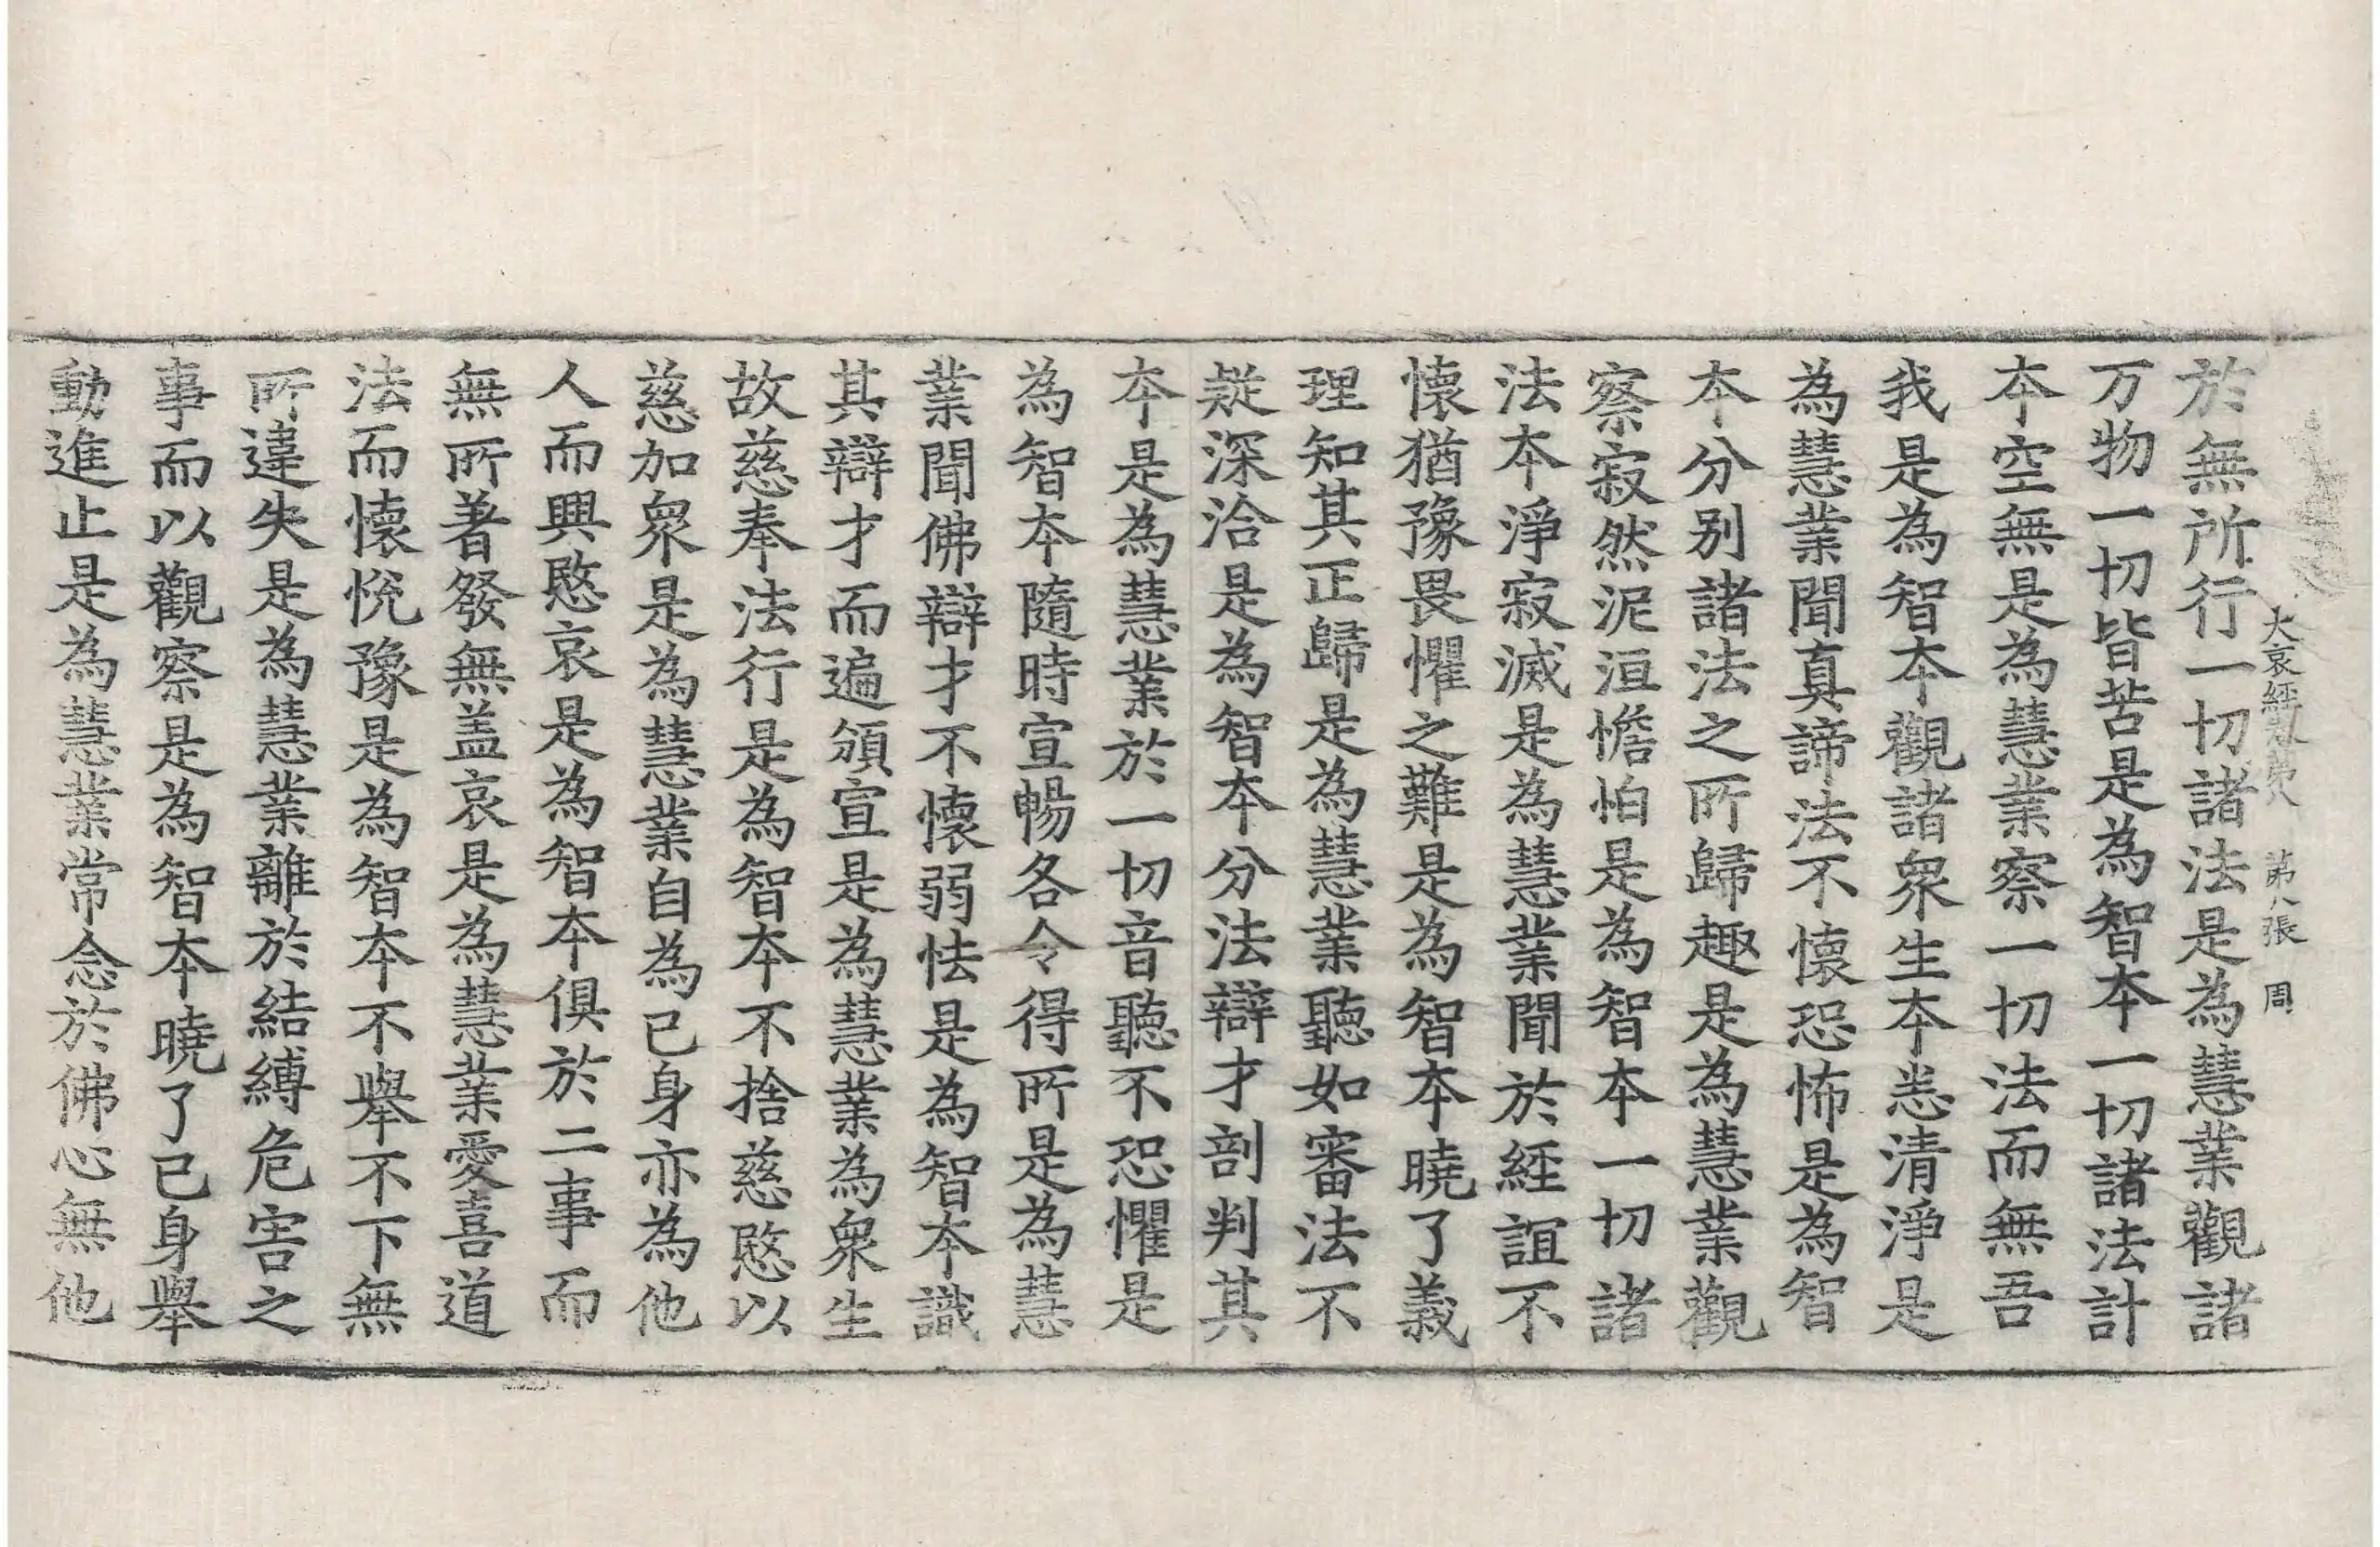 大哀經卷第八 第八張 周
於無所行一切諸法是為慧業觀諸
万物一切皆苦是為智本一切諸法計
本空無是為慧業察一切法而無吾
我是為智本觀諸衆生本悉清淨是
為慧業聞真諦法不懷恐怖是為智
本分別諸法之所歸趣是為慧業觀
察寂然泥洹憺怕是為智本一切諸
法本淨寂滅是為慧業聞於經誼不
懷猶豫畏懼之難是為智本曉了義
理知其正歸是為慧業聽如審法不
疑深洽是為智本分法辯才剖判其
本是為慧業於一切音聽不恐懼是
為智本隨時宣暢各令得所是為慧
業聞佛辯才不懷弱怯是為智本識
其辯才而遍頒宣是為慧業為衆生
故慈奉法行是為智本不捨慈愍以
慈加衆是為慧業自為己身亦為他
人而興愍哀是為智本俱於二事而
無所著發無盖哀是為慧業愛喜道
法而懷悅豫是為智本不舉不下無
所違失是為慧業離於結縛危害之
事而以觀察是為智本曉了己身舉
動進止是為慧業常念於佛心無他